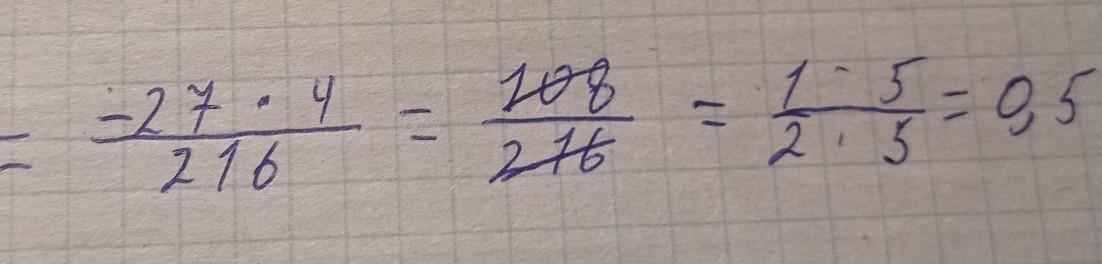 = -27 · 4 / 216 = 108 / 216 = 1 · 5 / 2 · 5 = 0,5